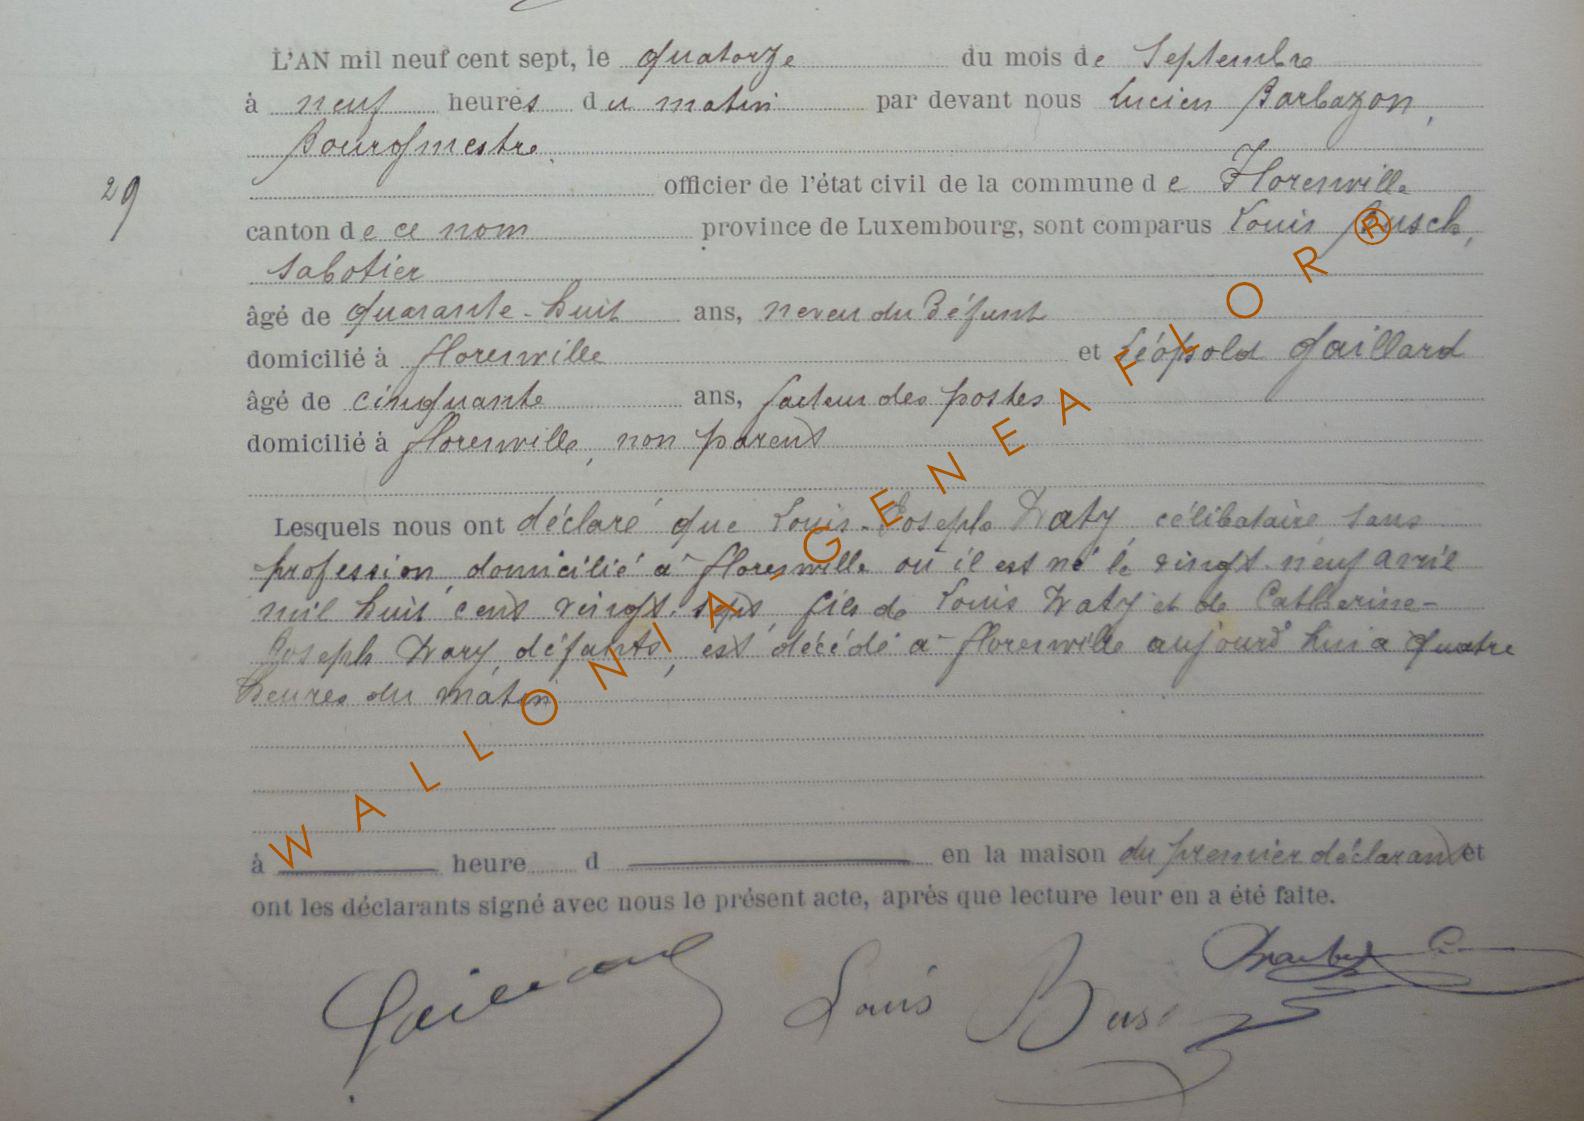 L'AN mil neuf cent sept, le quatorze du mois de Septembre
à neuf heures du matin par devant nous Lucien Barbazon,
Bourgmestre.
29
officier de l'état civil de la commune de Florenville
canton de ce nom province de Luxembourg, sont comparus Louis Busch,
sabotier
âgé de quarante-huit ans, neveu du Défunt
domicilié à florenville et Léopold Gaillard
âgé de cinquante ans, facteur des postes
domicilié à florenville, non parent
Lesquels nous ont déclaré que Louis-Joseph Waty célibataire sans
profession domicilié à florenville où il est né le vingt-neuf avril
mil huit cent vingt-sept, fils de Louis Waty et de Catherine-
Joseph Wary, défunts, est décédé à florenville aujourd'hui à quatre
heures du matin
à heure d en la maison du premier déclarant et
ont les déclarants signé avec nous le présent acte, après que lecture leur en a été faite.
Gaillard Louis Busch
WALLONIA-GENEAFLOR®